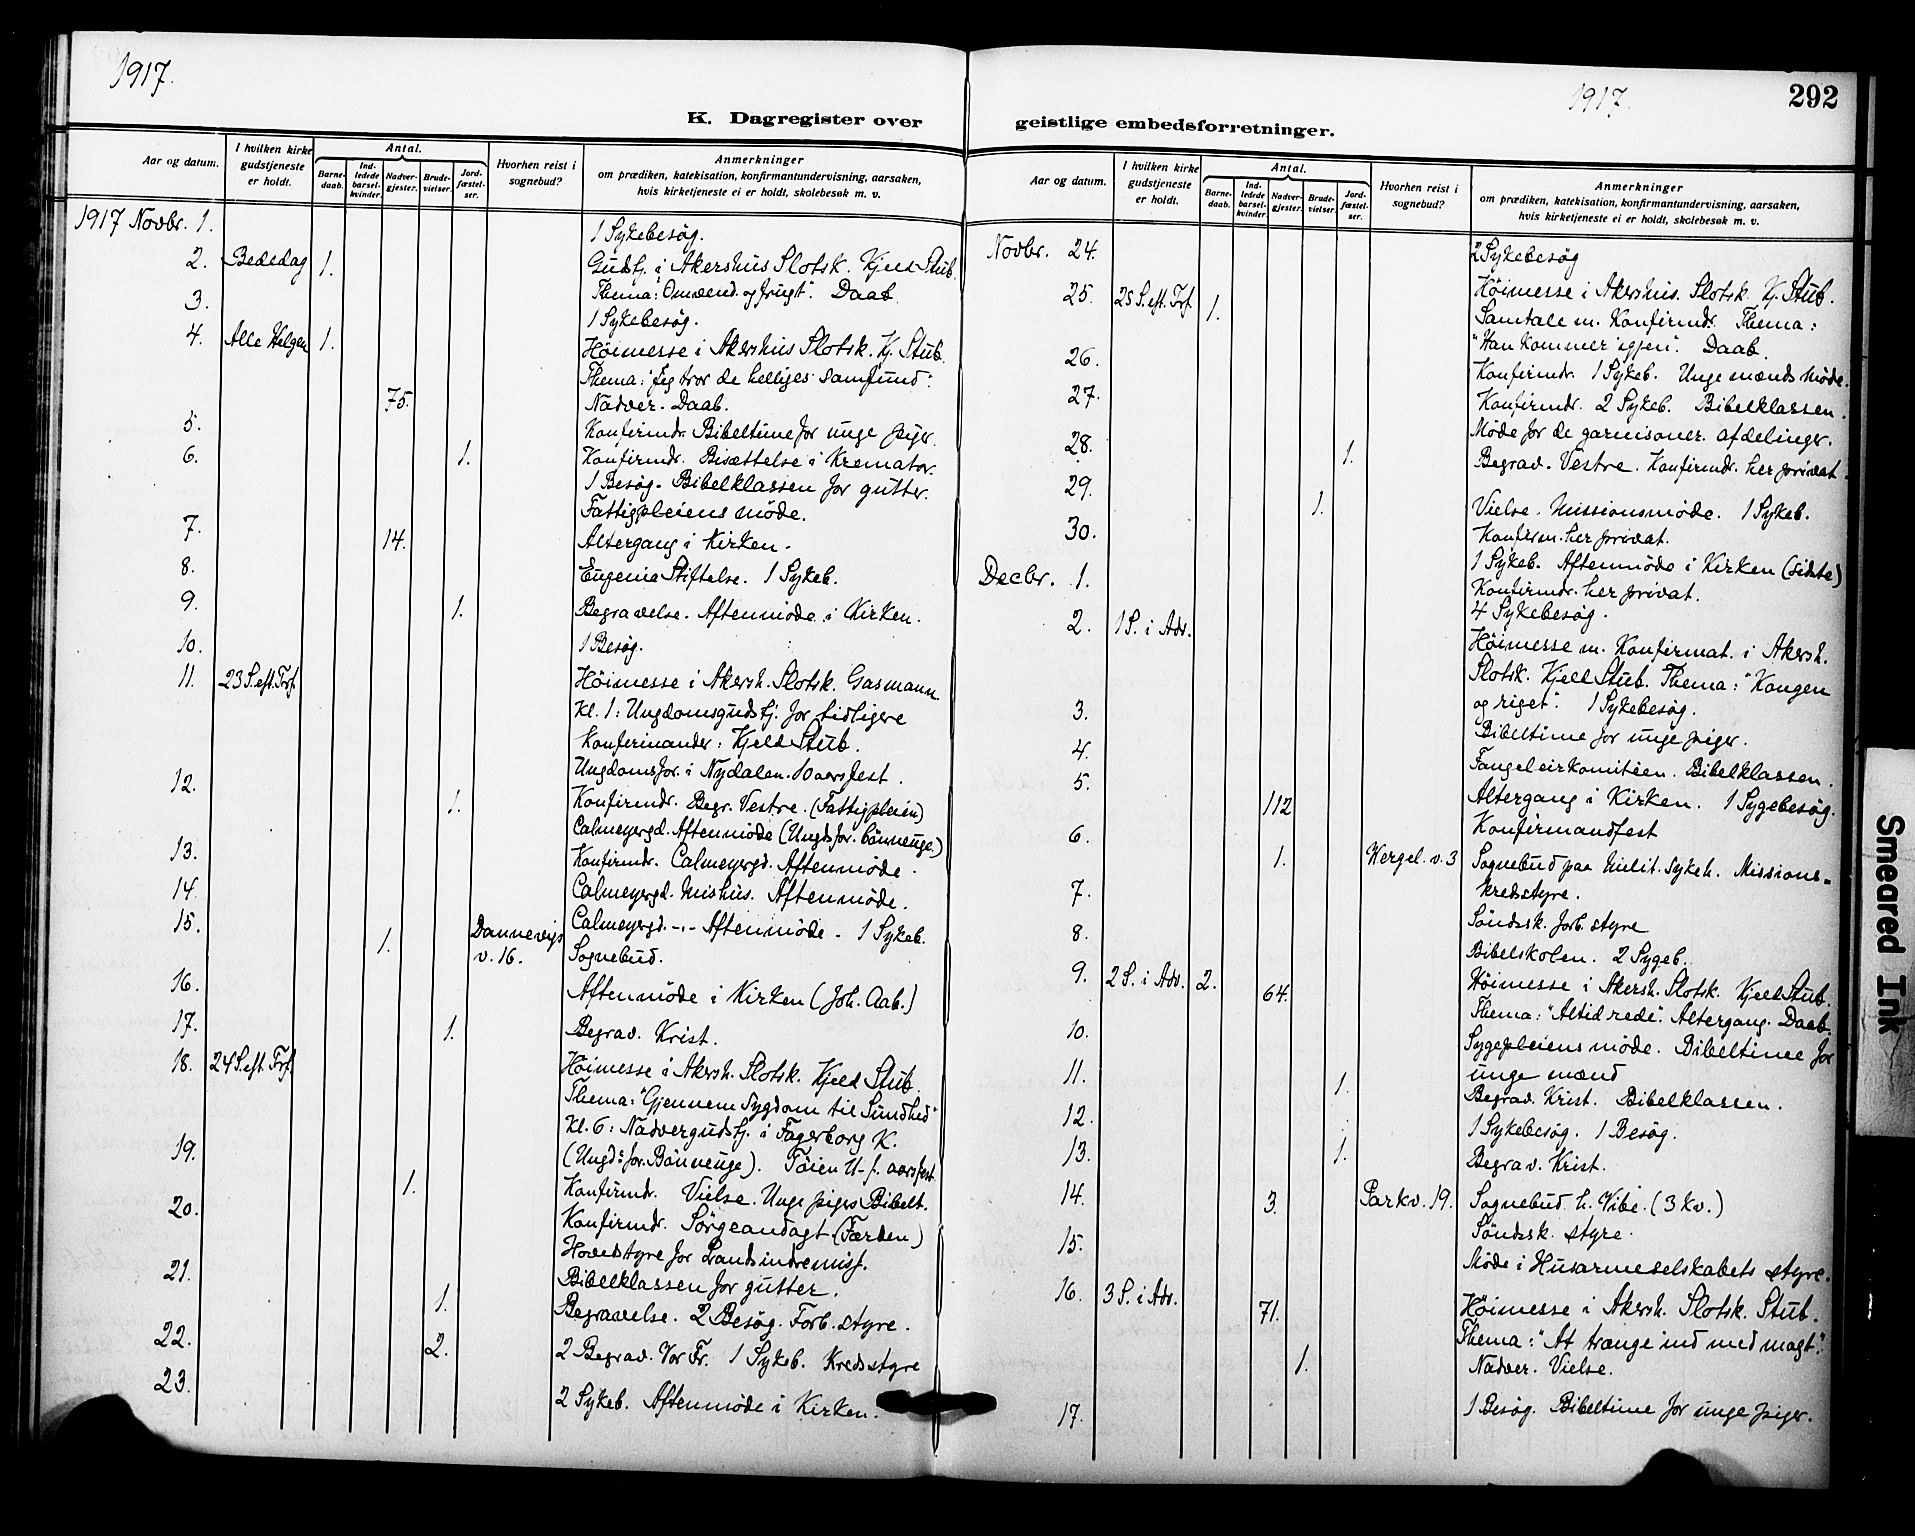 1917.
K. Dagregister over
Aar og datum.
I hvilken kirke gudstjeneste er holdt.
Antal.
Barne-daab.
Ind-ledede barsel-kvinder.
Nadver-gjester.
Brude-vielser.
Jord-fæstel-ser.
Hvorhen reist i sognebud?
Anmerkninger
om prædiken, katekisation, konfirmantundervisning, aarsaken,
hvis kirketjeneste ei er holdt, skolebesøk m. v.
1917 Novbr. 1. 1 Sykebesøg.
2. Bededag 1. Gudstj. i Akershus Slotsk. Kjeld Stub
Thema: "Omvend. og frugt". Daab
3. 1 Sykebesøg.
4. Alle Helgen 1. Höimesse i Akershus Slotsk. Kj. Stub.
Thema: "Jeg tror de helliges samfund".
75. Nadver. Daab.
5. Konfirmdr. Bibeltime for unge piger.
6. 1. Konfirmdr. Bisættelse i Kremator.
1 Besøg. Bibelklassen for gutter.
Fattigpleiens møde.
7. 14. Altergang i Kirken.
8. Eugenia Stiftelse. 1 Sykeb.
9. 1. Begravelse. Aftenmøde i Kirken.
10. 1 Besøg.
11. 23 S. eft. Trf. Höimesse i Akersh. Slotsk. Gasmann
Kl. 1: Ungdomsgudstj. for tidligere
Konfirmander: Kjeld Stub.
Ungdomsfor. i Nydalen. 10 aarsfest.
12. 1. Konfirmdr. Begr. Vestre. (Fattigpleien)
Calmeyergd. Aftenmøde (Ungdsfor. bönneuge.)
13. Konfirmdr. Calmeyergd. Aftenmøde.
14. Calmeyergd. Mishus. Aftenmøde.
15. Calmeyergd. -"- Aftenmöde - 1 Sykeb.
1. Dannevigs v. 16. Sognebud.
16. Aftenmøde i Kirken (Joh. Aab.)
17. 1. Begrav. Krist.
18. 24 S. eft. Trf. Höimesse i Akersh. Slotsk. Kjeld Stub.
Thema: "Gjennem Sygdom til Sundhed"
Kl. 6: Nadvergudstj. i Fagerborg K.
19. (Ungd: for. Bönneuge). Töien U-f. aarsfest
1. Konfirmdr. Vielse. Unge pigers Bibelt.
20. Konfirmdr. Sörgeandagt (Færden)
Hovedstyre for Landsindremisj.
21. Bibelklassen for gutter.
1. Begravelse. 2 Besøg. Forb. styre.
22. 2. 2 Begrav. Vor Fr. 1 Sykeb. Kredsstyre
23. 2 Sykeb. Aftenmøde i Kirken.
1917.
292
geistlige embedsforretninger.
Aar og datum.
I hvilken kirke gudstjeneste er holdt.
Antal.
Barne-daab.
Ind-ledede barsel-kvinder.
Nadver-gjester.
Brude-vielser.
Jord-fæstel-ser.
Hvorhen reist i sognebud?
Anmerkninger
om prædiken, katekisation, konfirmantundervisning, aarsaken,
hvis kirketjeneste ei er holdt, skolebesøk m. v.
Novbr. 24. 2 Sykebesøg
25. 25 S. eft. Trf. 1. Höimesse i Akershus. Slotsk. Kj. Stub.
Samtale m. Konfirmdr. Thema:
"Han kommer igjen". Daab.
26. Konfirmdr. 1 Sykeb. Unge mænds Møde.
27. Konfirmdr. 2 Sykeb. Bibelklassen.
Møde for de garnisoner. afdelinger.
28. 1. Begrav. Vestre. Konfirmdr. her privat.
29. 1. Vielse. Missionsmøde. 1 Sykeb.
30. Konfirm. her privat.
1 Sykeb. Aftenmöde i Kirken (sidste)
Decbr. 1. Konfirmdr. her privat.
4 Sykebesøg.
2. 1 S. i Adv. Höimesse m. Konfirmat. i Akersh.
Slotsk. Kjeld Stub. Thema: "Kongen
og riget". 1 Sykebesøg.
3. Bibeltime for unge piger.
4. Fangeleirkomitéen. Bibelklassen.
5. 112 Altergang i Kirken. 1 Sygebesøg.
Konfirmandfest
6. 1. Wergel. v. 3 Sognebud paa Milit. sykeh. Missions-
kredsstyre.
7. Söndsk. forb. styre
8. Bibelskolen. 2 Sygeb.
9. 2 S. i Adv. 2. 64. Höimesse i Akersh. Slotsk. Kjeld Stub.
Thema: "Altid rede". Altergang. Daab.
10. Sygepleiens møde. Bibeltime for
unge mænd
11. 1. Begrav. Krist. Bibelklassen.
12. 1 Sykebesøg. 1 Besøg.
13. 1. Begrav. Krist.
14. 3. Parkv. 19. Sognebud h. Vibe. (3 kv.)
Söndsk. styre.
15. Møde i Husarmeselskabets styre.
16. 3 S. i Adv. 71. Höimesse i Akersh. Slotsk. Stub.
Thema: "At trænge ind med magt".
1. Nadver. Vielse.
17. 1 Besøg. Bibeltime for unge piger.
Smeared Ink